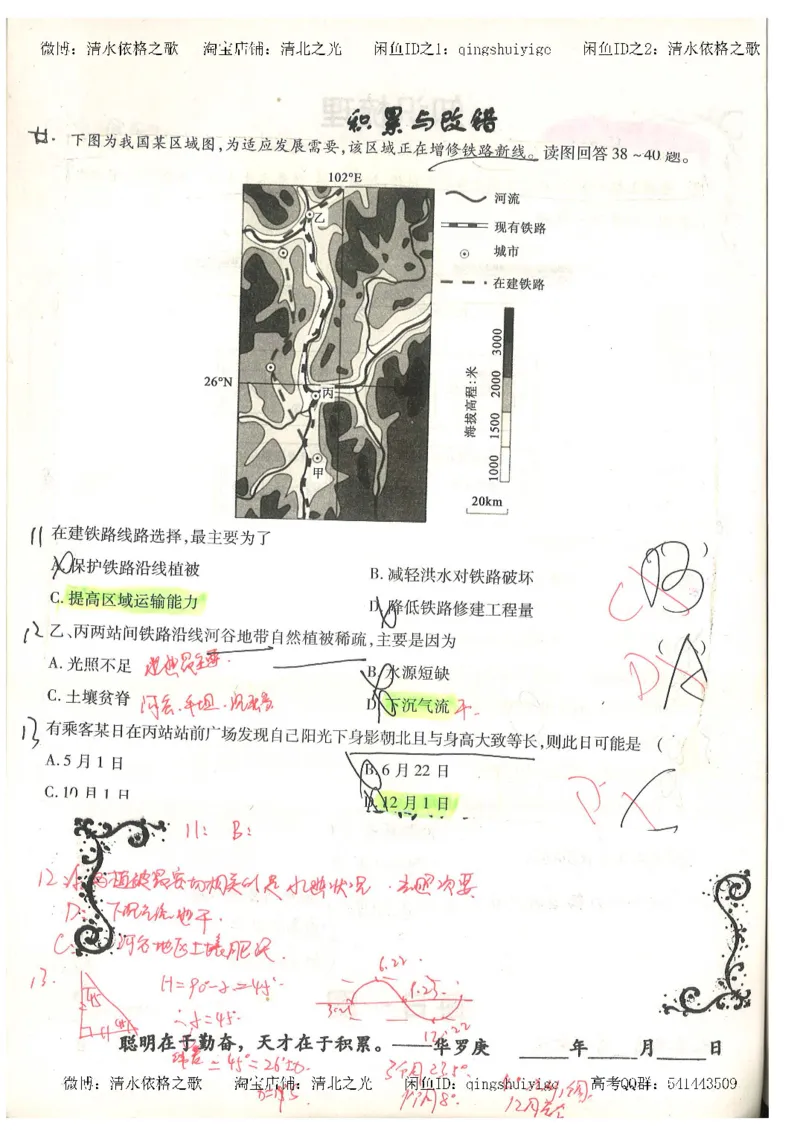 微博：清水依格之歌 淘宝店铺：清北之光 闲鱼ID之1：qingshuiyige 闲鱼ID之2：清水依格之歌
积累与改错
廿. 下图为我国某区域图,为适应发展需要,该区域正在增修铁路新线。读图回答 38～40 题。
102°E
乙
河流
现有铁路
城市
在建铁路
26°N
丙
甲
海拔高程:米
3000
2000
1500
1000
20km
11 在建铁路线路选择,最主要为了 ( )
A. 保护铁路沿线植被
B. 减轻洪水对铁路破坏
C. 提高区域运输能力
D. 降低铁路修建工程量
C B
12 乙、丙两站间铁路沿线河谷地带自然植被稀疏,主要是因为 ( )
A. 光照不足
B. 水源短缺
C. 土壤贫脊
D. 下沉气流 干.
D A
13 有乘客某日在丙站站前广场发现自己阳光下身影朝北且与身高大致等长,则此日可能是 (
A. 5 月 1 日
B. 6 月 22 日
C. 10 月 1 日
D. 12 月 1 日
D
11: B:
D: 下沉气流 地干.
C: 河谷地区土壤肥沃.
13.
45
H=90-δ=45°
∴δ=45°
6.22
12.22
聪明在于勤奋，天才在于积累。——华罗庚 ____年____月____日
=45°=26°
3个月23.5°
1个月8°
微博：清水依格之歌 淘宝店铺：清北之光 闲鱼ID：qingshuiyige 高考QQ群：541443509